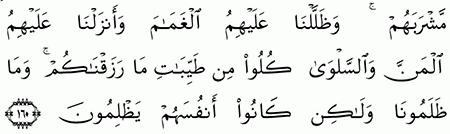 مَّشْرَبَهُمْ ۚ وَظَلَّلْنَا عَلَيْهِمُ ٱلْغَمَـٰمَ وَأَنزَلْنَا عَلَيْهِمُ
ٱلْمَنَّ وَٱلسَّلْوَىٰ كُلُوا۟ مِن طَيِّبَـٰتِ مَا رَزَقْنَـٰكُمْ ۚ وَمَا
ظَلَمُونَا وَلَـٰكِن كَانُوٓا۟ أَنفُسَهُمْ يَظْلِمُونَ ﴿١٦٠﴾